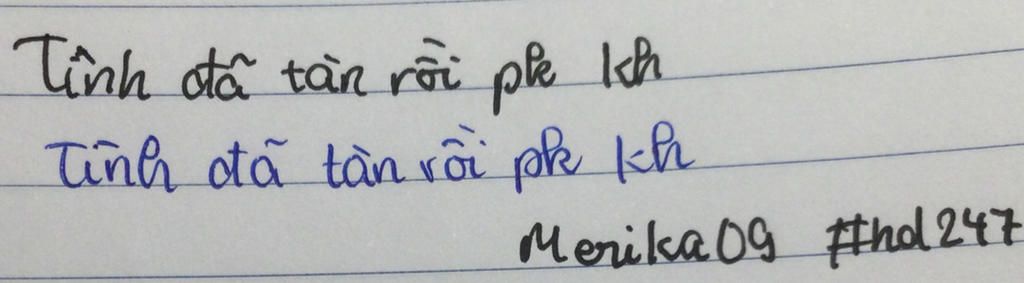 Tình đã tàn rồi pk kh
Tình đã tàn rồi pk kh
Merika09 #hd247